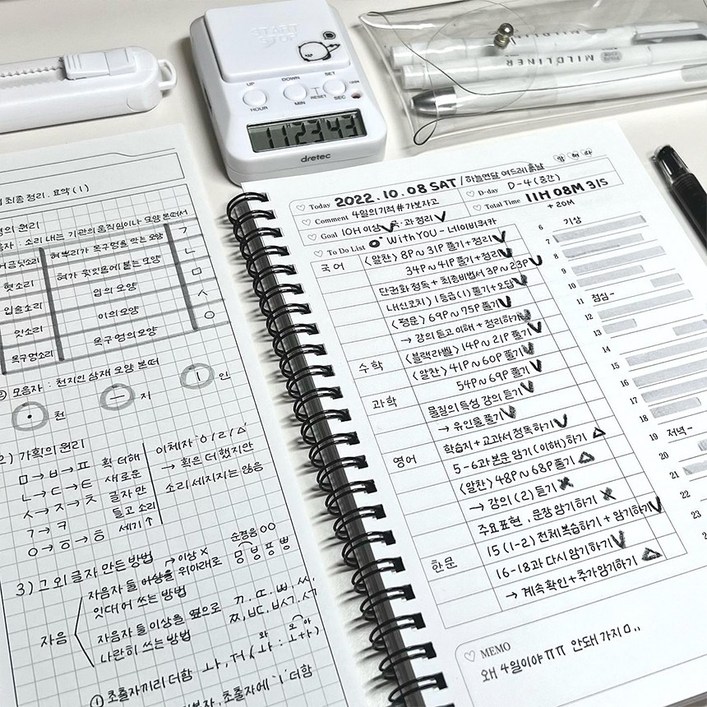 START
STOP
UP
DOWN
SET
HOUR
MIN
RESET
SEC
11 23 43
dretec
MILDLINER
MILDLINER
최종 정리. 요약 (1)
원리
소리 내는 기관의 움직임이나 모양 본떠서
혀뿌리가 목구멍을 막는 모양
ㄱ
혓소리
혀가 윗잇몸에 붙는 모양
ㄴ
입술소리
입의 모양
ㅁ
잇소리
이의 모양
ㅅ
목구멍소리
목구멍의 모양
ㅇ
모음자 : 천지인 삼재 모양 본떠
· 천
ㅡ 지
ㅣ 인
2) 가획의 원리
ㅁ → ㅂ → ㅍ
ㄴ → ㄷ → ㅌ
ㅅ → ㅈ → ㅊ
ㄱ → ㅋ
ㅇ → ㆆ → ㅎ
획 더해
새로운
글자 만
들고 소리
세기 ↑
이체자 ㆁ/ㄹ/ㅿ
→ 획은 더 했지만
소리 세지지는 않음
3) 그 외 글자 만든 방법
→ 이상 X
순경음 ㅇㅇ
자음
자음자 둘 이상을 위아래로
잇대어 쓰는 방법
ㅱ ㅸ ㆄ ㅹ
자음자 둘 이상을 옆으로
나란히 쓰는 방법
ㄲ. ㄸ. ㅃ. ㅆ.
① 초출자끼리 더함
초출자에 'ㅣ' 더함
Today 2022. 10. 08 SAT / 하늘연달 여드레 흙날
D-day D-4 (중간)
Comment 4월의 기적 #가보자고
Total Time 11H 08M 31S
+ 20M
Goal 10H 이상 국·과 정리
To Do List With YOU - 네이비쿼카
국어
〈알찬〉 8P ~ 31P 풀기 + 정리
34P ~ 41P 풀기 + 정리
단권화 정독 + 최종비법서 3P ~ 23P
내신코치) 1등급 (1) 풀기 + 오답
〈평문〉 69P ~ 75P 풀기
→ 강의 듣고 이해 + 정리하기
수학
〈블랙라벨〉 14P ~ 21P 풀기
과학
〈알찬〉 41P ~ 60P 풀기
54P ~ 69P 풀기
물질의 특성 강의 듣기
→ 유인물 풀기
영어
학습지 + 교과서 정독하기
5-6과 본문 암기 (이해)하기
〈알찬〉 48P ~ 68P 풀기
→ 강의 (2) 듣기
주요 표현, 문장 암기하기
한문
15 (1-2) 전체 복습하기 + 암기하기
16-18과 다시 암기하기
→ 계속 확인 + 추가암기하기
6 기상
7
8
9
10
11
12 점심-
13
14
15
16
17
18
19 저녁-
20
21
22
23
MEMO
왜 4일이야 ㅠㅠ 안돼 가지마..